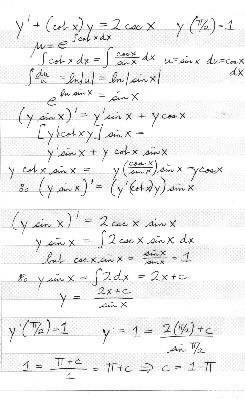 y' + (cot x) y = 2 csc x   y(π/2) = 1
μ = e^∫cot x dx
∫cot x dx = ∫ cos x / sin x dx   u = sin x   du = cos x dx
∫ du/u = ln|u| = ln|sin x|
e^ln sin x = sin x
(y sin x)' = y' sin x + y cos x
[y' cot x y] sin x =
y' sin x + y cot x sin x
y cot x sin x = y (cos x / sin x) sin x = y cos x
so (y sin x)' = (y' (cot x) y) sin x
(y sin x)' = 2 csc x sin x
y sin x = ∫ 2 csc x sin x dx
but csc x sin x = sin x / sin x = 1
so y sin x = ∫ 2 dx = 2x + c
y = 2x + c / sin x
y'(π/2) = 1   y' = 1 = 2(π/2) + c / sin π/2
1 = π + c / 1 = π + c ⇒ c = 1 - π